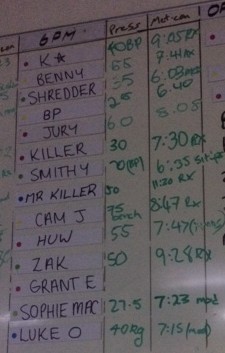 6PM Press Met-con
K☆ 40BP 9:05 RX
BENNY 65 7:41
SHREDDER 35 6:08
BP 6:40
JURY 60 8:05
KILLER 30 7:30 RX
SMITHY 70(BP) 6:35
MR KILLER 50 11:20 RX
CAM J 75 bench 8:47 RX
HUW 55 7:47
ZAK 50 9:28 RX
GRANT E
SOPHIE MAC 27.5 7:23 mod
LUKE O 40kg 7:15 (mod)